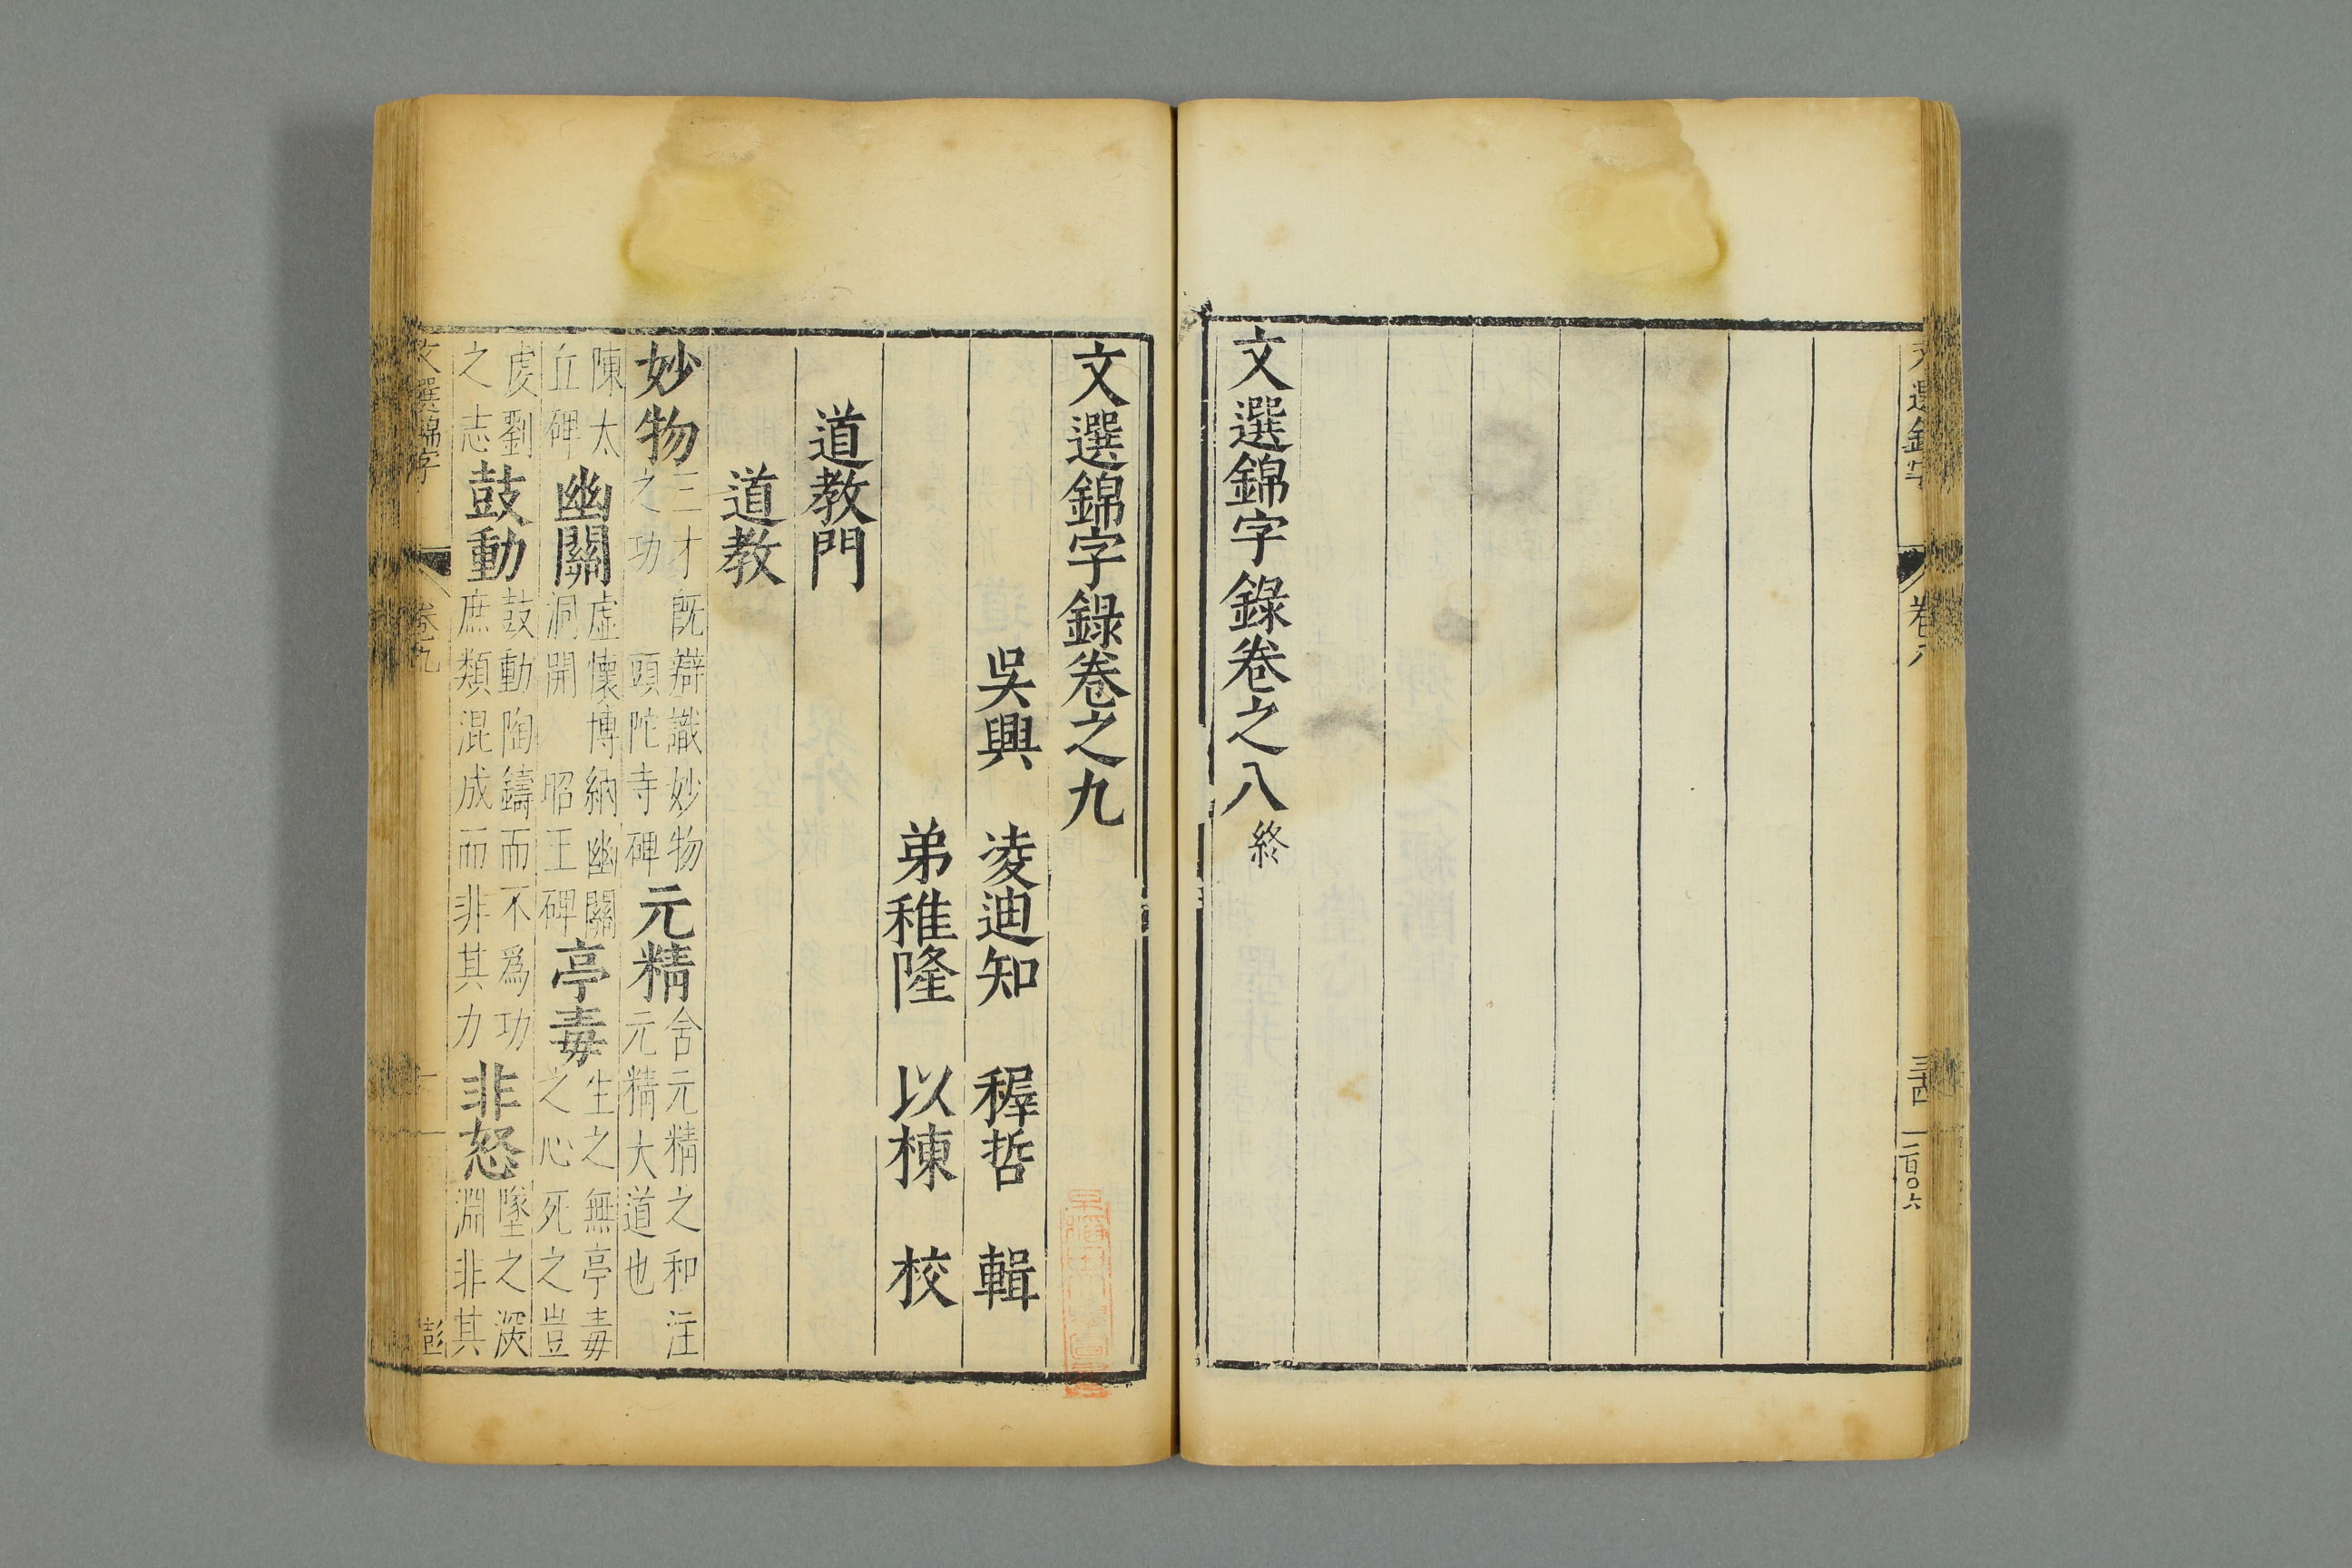 文選錦字 卷八 三十四 二百〇六
文選錦字錄卷之八終
文選錦字錄卷之九
吳興 凌迪知 穉哲 輯
弟稚隆 以棟 校
道教門
道教
妙物三才既辯識妙物之功 頭陀寺碑元精含元精之和注元精大道也
陳太丘碑幽關虛懷博納幽關洞開 昭王碑亭毒生之無亭毒之心死之豈
虔劉之志鼓動鼓動陶鑄而不爲功庶類混成而非其力非怒墜之深淵非其
文選錦字 卷九 一 彭